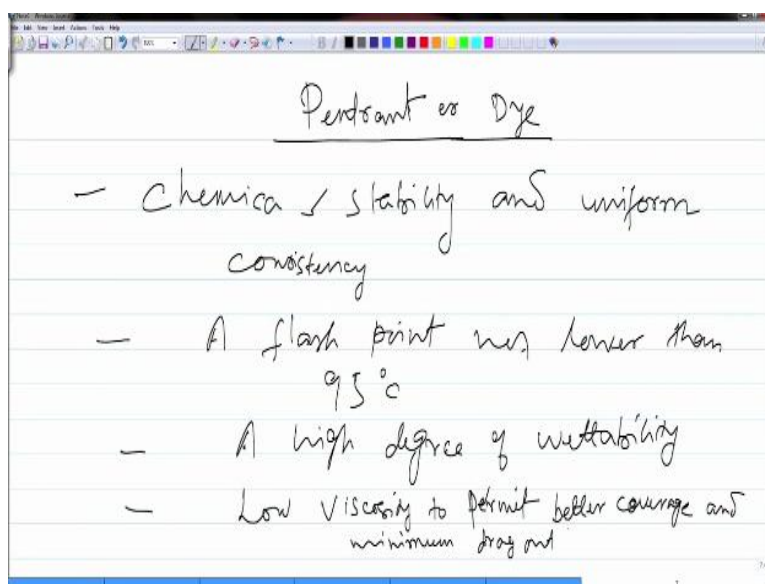 Penetrant or Dye
- Chemical stability and uniform
consistency
- A flash point not lower than
95°C
- A high degree of wettability
- Low Viscosity to permit better coverage and
minimum drag out